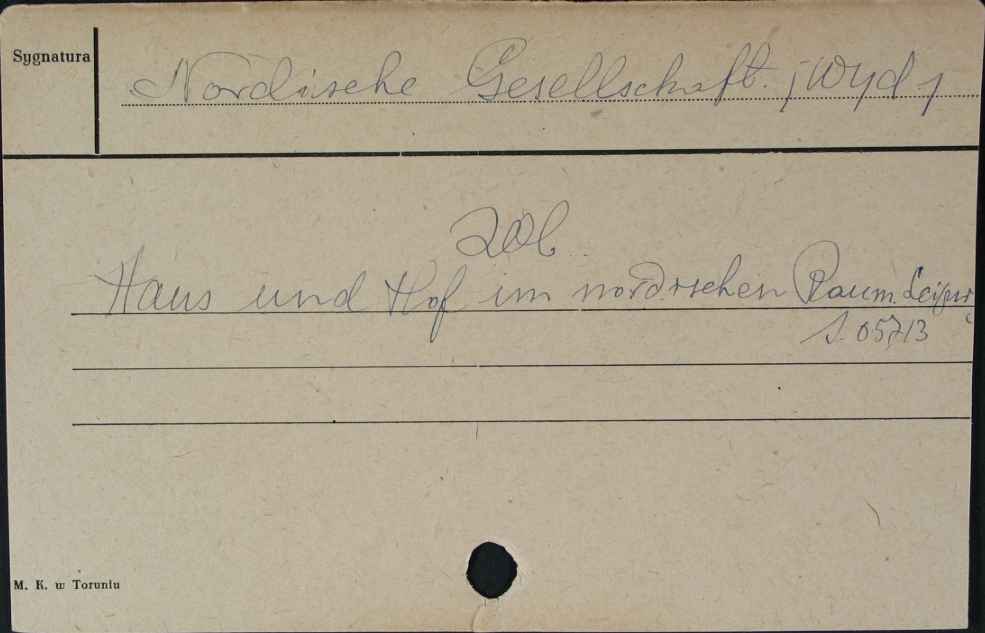 Sygnatura
Nordische Gesellschaft. [Wyd]
Zob
Haus und Hof im nordischen Raum. Leipzig
S. 05713
M. K. w Toruniu